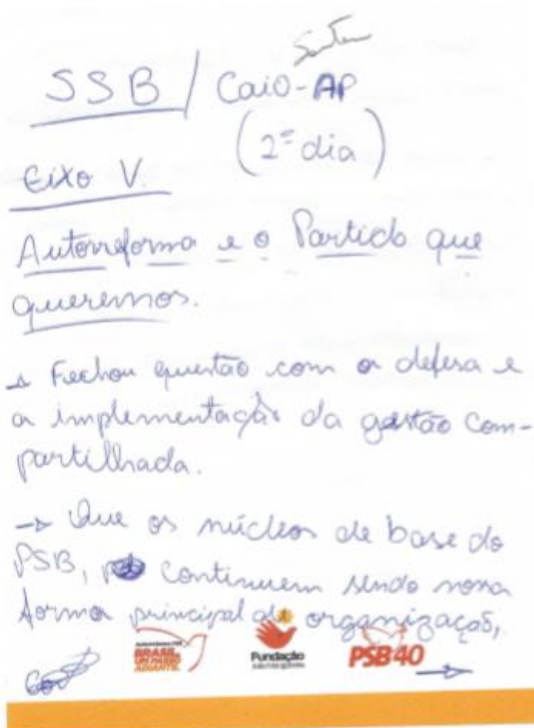 SSB / Caio-AP
(2º dia)
Eixo V.
Autorreforma e o Partido que
queremos.
→ Fechou questão com a defesa e
a implementação da gestão com-
partilhada.
→ Que os núcleos de base do
PSB, continuem sendo nossa
forma principal de organização,
BRASIL,
UM PASSO
ADIANTE.
Fundação
João Mangabeira
PSB 40
→